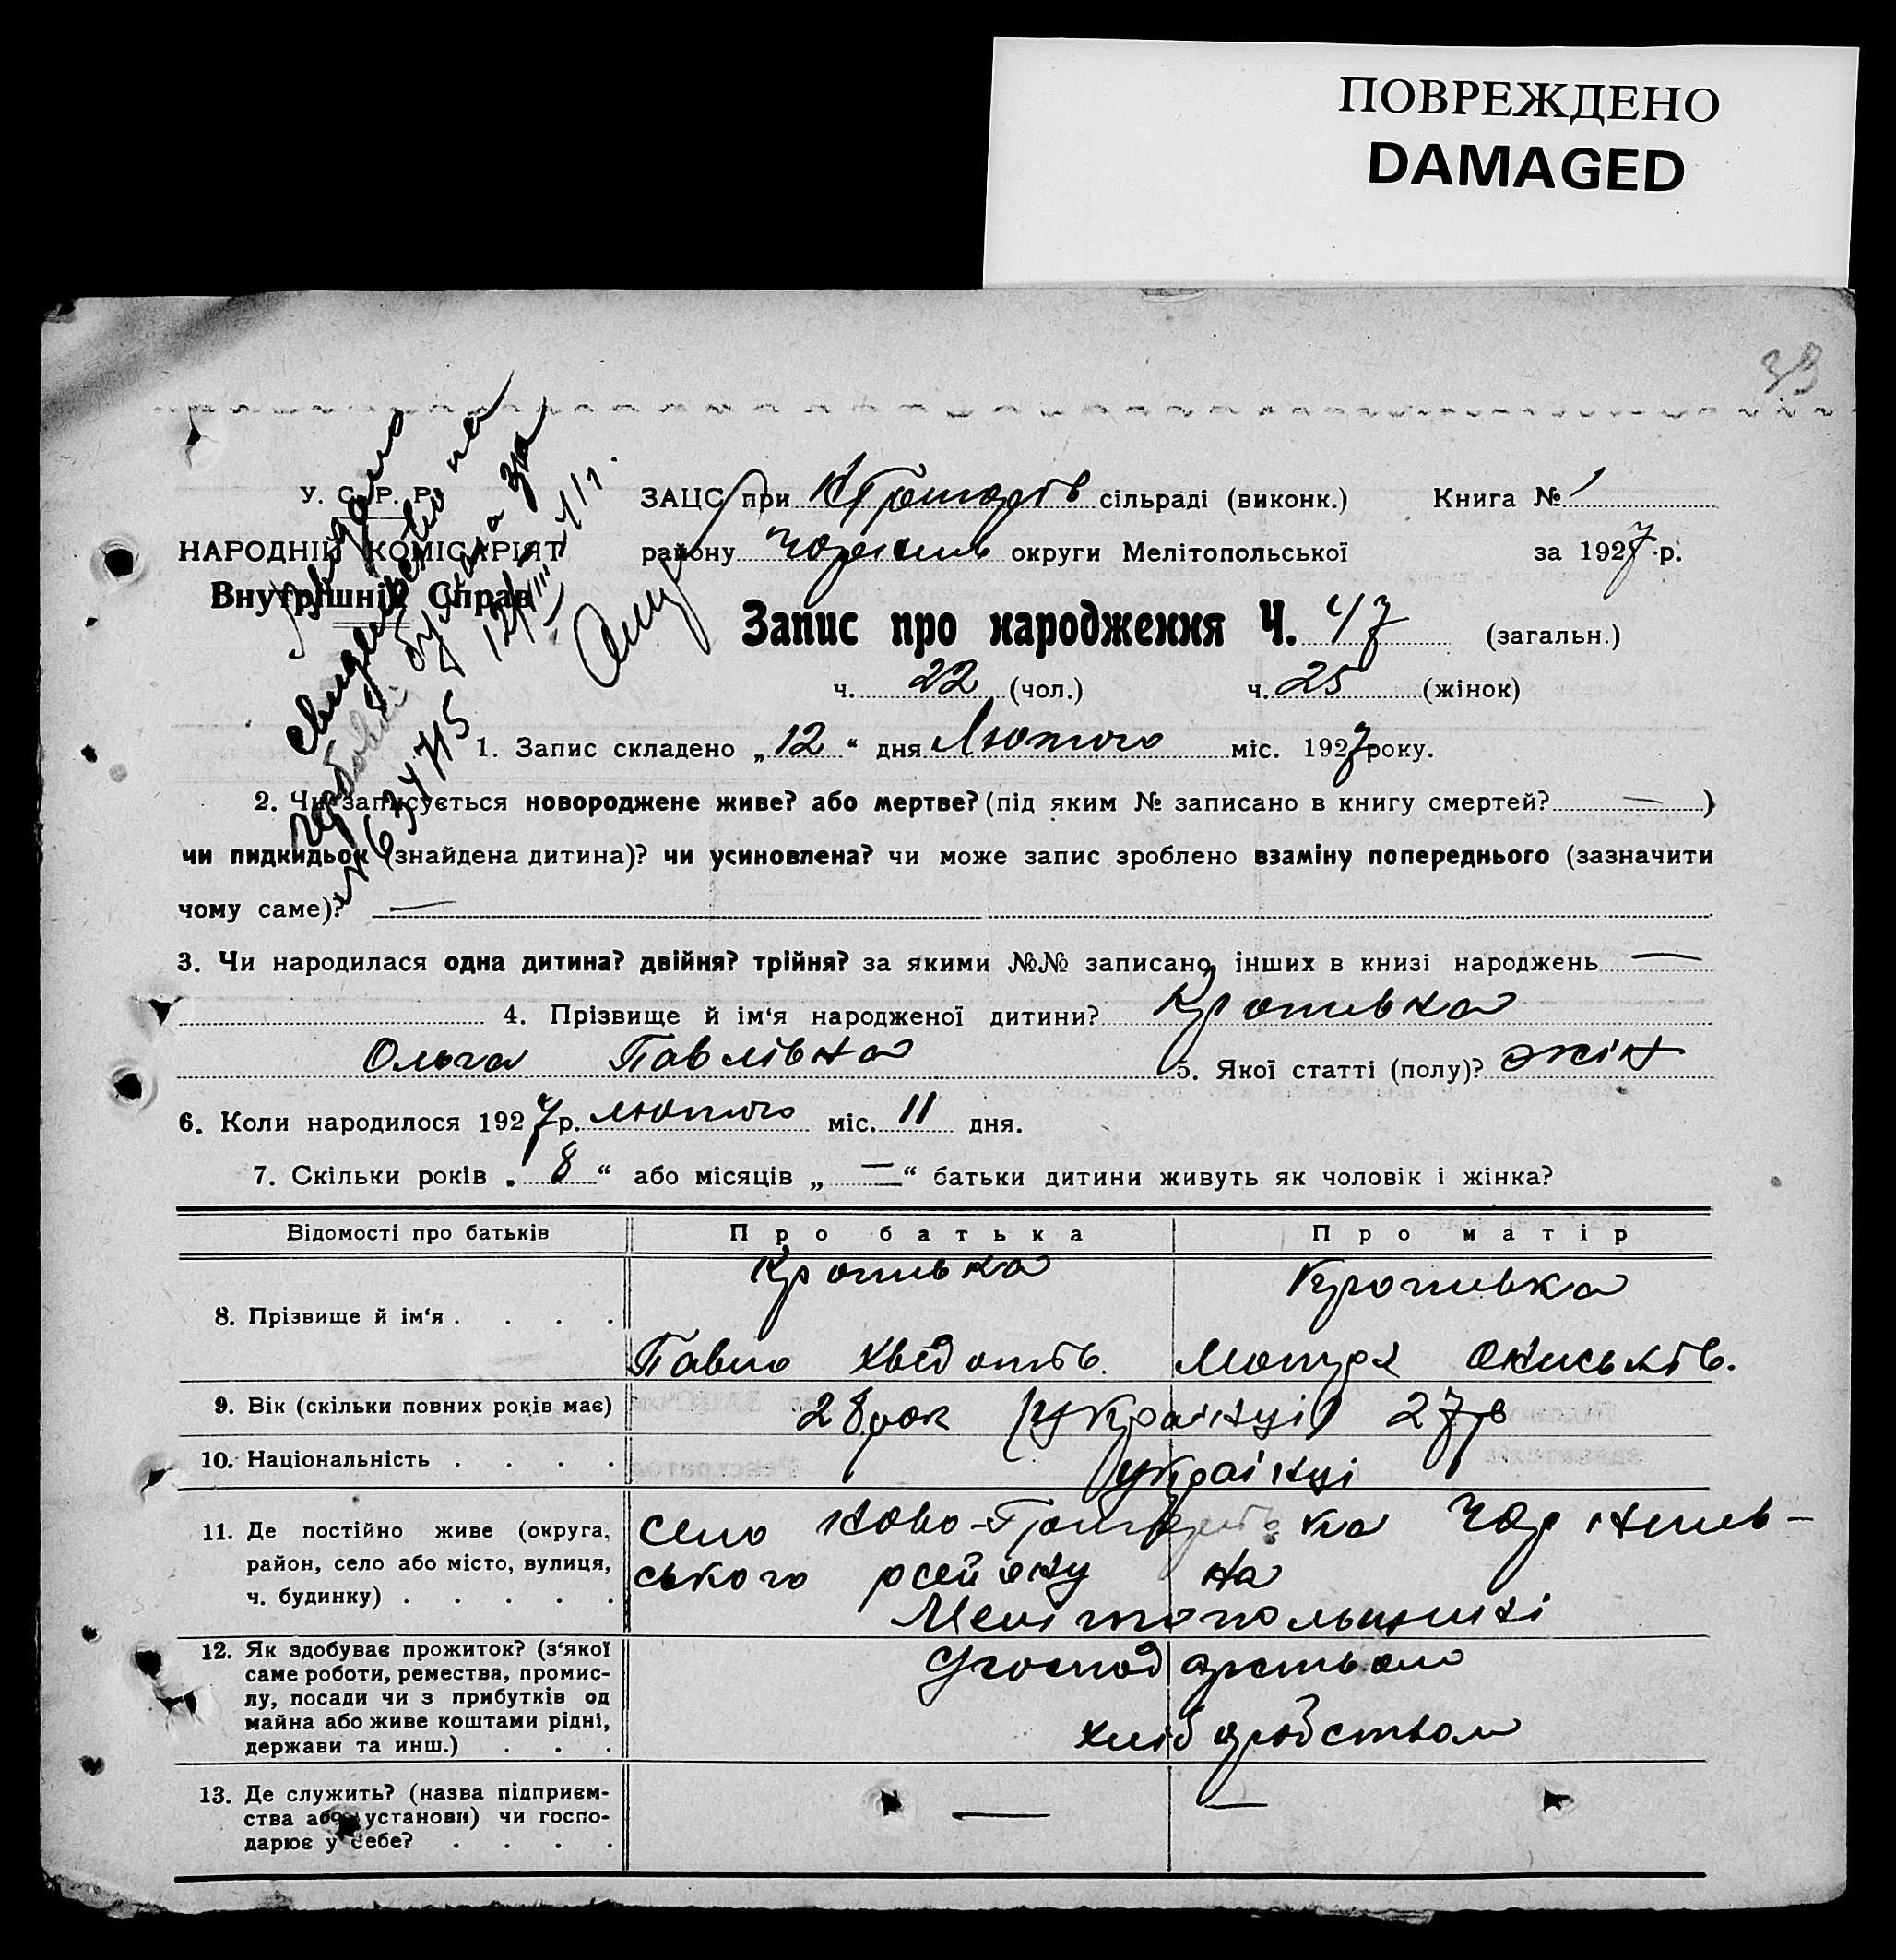 ПОВРЕЖДЕНО
DAMAGED
39
У. С. Р. Р.
НАРОДНІЙ КОМІСАРІЯТ
Внутрішніх Справ
ЗАЦС при сільраді (виконк.) Книга № 1
району округи Мелітопольської за 1927 р.
Запис про народження Ч. 47 (загальн.)
ч. 22 (чол.) ч. 25 (жінок)
1. Запис складено „12“ дня Лютого міс. 1927 року.
2. Чи записується новороджене живе? або мертве? (під яким № записано в книгу смертей? — )
чи пидкидьок (знайдена дитина)? чи усиновлена? чи може запис зроблено взаміну попереднього (зазначити
чому саме)? —
3. Чи народилася одна дитина? двійня? трійня? за якими №№ записано інших в книзі народжень —
4. Прізвище й ім‘я народженої дитини? Кропивка
Ольга Павлівна 5. Якої статті (полу)? жін
6. Коли народилося 1927 р. лютого міс. 11 дня.
7. Скільки років „8“ або місяців „—“ батьки дитини живуть як чоловік і жінка?
Відомості про батьків Про батька Про матір
8. Прізвище й ім‘я . . . . Кропивка Кропивка
Павло Хведотів. Мотря
9. Вік (скільки повних років має) 28 рок (українці) 27 р
10. Національність . . . . українці
11. Де постійно живе (округа,
район, село або місто, вулиця,
ч. будинку) . . . . .
село Ново- ка
ського району на
Мелітопольщині
12. Як здобуває прожиток? (з‘якої
саме роботи, ремества, промис-
лу, посади чи з прибутків од
майна або живе коштами рідні,
держави та инш.) . . .
хліборобством
13. Де служить? (назва підприєм-
ства або установи) чи госпо-
дарює у себе? . . . .
— —